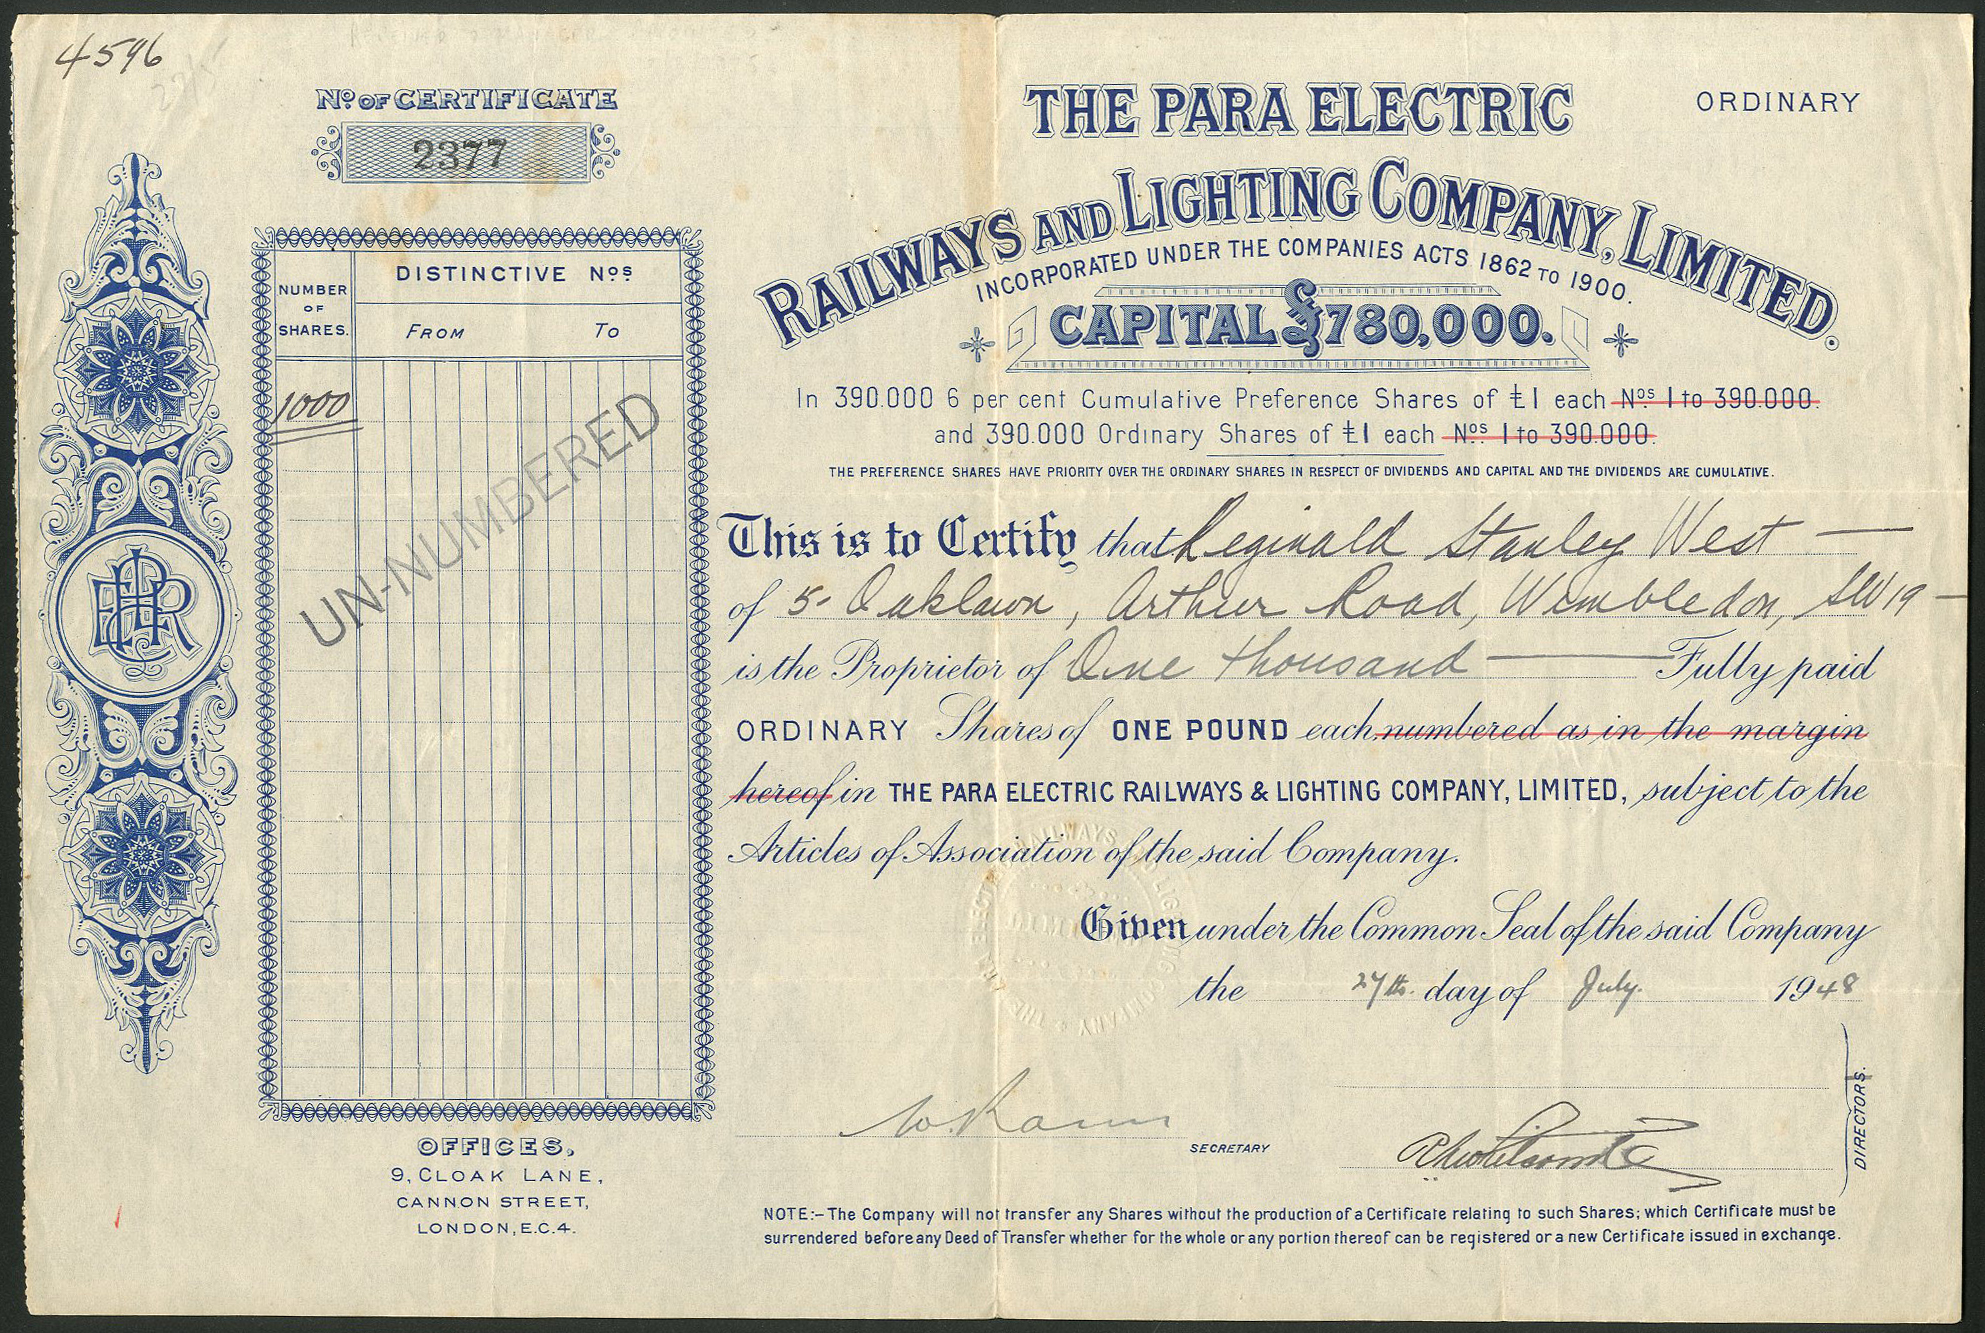 4596
Nº OF CERTIFICATE
2377
NUMBER OF SHARES.
DISTINCTIVE Nºs
FROM TO
1000
UN-NUMBERED
OFFICES,
9, CLOAK LANE,
CANNON STREET,
LONDON, E.C.4.
ORDINARY
THE PARA ELECTRIC
RAILWAYS AND LIGHTING COMPANY, LIMITED.
INCORPORATED UNDER THE COMPANIES ACTS 1862 TO 1900.
CAPITAL £780,000.
In 390.000 6 per cent Cumulative Preference Shares of £1 each Nºs 1 to 390.000.
and 390.000 Ordinary Shares of £1 each Nºs. 1 to 390.000
THE PREFERENCE SHARES HAVE PRIORITY OVER THE ORDINARY SHARES IN RESPECT OF DIVIDENDS AND CAPITAL AND THE DIVIDENDS ARE CUMULATIVE.
This is to Certify that Reginald Stanley West
of 5 Oaklawn, Arthur Road, Wimbledon, SW19
is the Proprietor of One thousand Fully paid
ORDINARY Shares of ONE POUND each, numbered as in the margin
hereof in THE PARA ELECTRIC RAILWAYS & LIGHTING COMPANY, LIMITED, subject to the
Articles of Association of the said Company.
Given under the Common Seal of the said Company
the 27th. day of July. 1948
SECRETARY
DIRECTORS.
NOTE:- The Company will not transfer any Shares without the production of a Certificate relating to such Shares; which Certificate must be
surrendered before any Deed of Transfer whether for the whole or any portion thereof can be registered or a new Certificate issued in exchange.